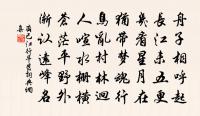 舟子相呼起
長江未五更
幾看星月在
猶帶夢魂行
鳥亂村林迥
人喧水柵橫
蒼茫平野外
漸認遠峰名
齊己江行早發詞典網
集